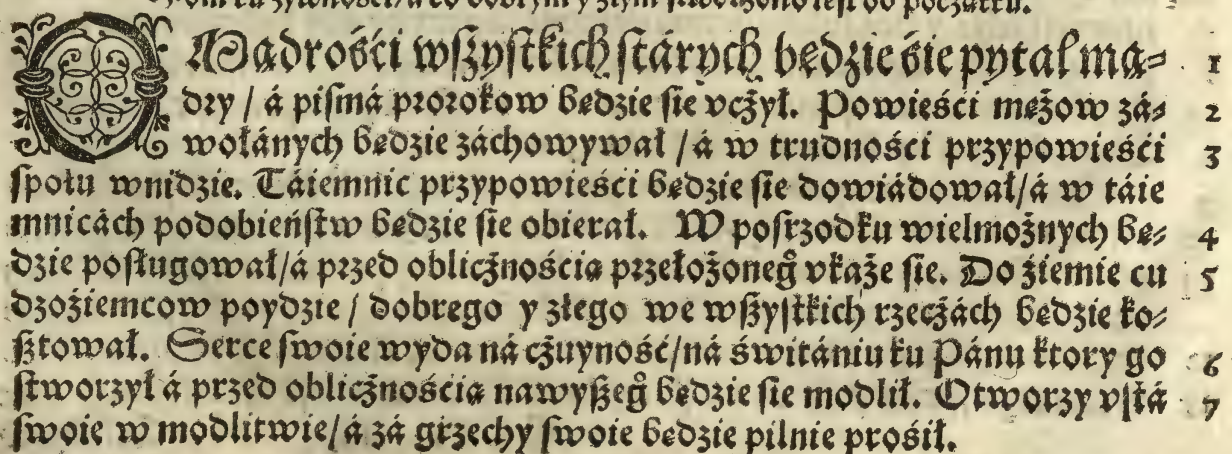 O Mądrości wſzyſtkich ſtárych będzie ſie pytał mą= 1
dry / á piſmá prorokow będzie ſie vcżył. Powieści mężow zá= 2
wołánych będzie záchowywał / á w trudności przypowieści 3
ſpołu wnidzie. Táiemnic przypowieści będzie ſie dowiádował/á w táie
mnicách podobieńſtw będzie ſie obierał. W poſrzodku wielmożnych bę= 4
dzie poſługował/á przed oblicżnością przełożoneg̊ vkaże ſie. Do źiemie cu 5
dzoźiemcow poydzie / dobrego y złego we wſzyſtkich rzecżách będzie ko=
ſztował. Serce ſwoie wyda ná cżuyność/ná świtániu ku Pánu ktory go 6
ſtworzył á przed oblicżnością nawyżſzeg̊ będzie ſie modlił. Otworzy vſtá 7
ſwoie w modlitwie/á zá grzechy ſwoie będzie pilnie prośił.